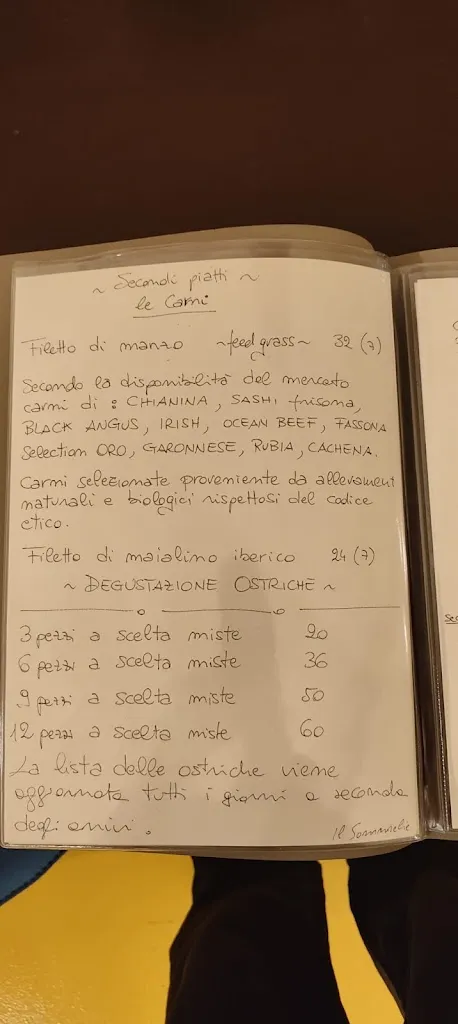 ~ Secondi piatti ~
le Carni
Filetto di manzo ~feed grass~ 32 (7)
Secondo la disponibilità del mercato
carni di : CHIANINA, SASHI frisona,
BLACK ANGUS, IRISH, OCEAN BEEF, FASSONA
Selection ORO, GARONNESE, RUBIA, CACHENA.
Carni selezionate proveniente da allevament
naturali e biologici rispettosi del codice
etico.
Filetto di maialino iberico 24 (7)
~ DEGUSTAZIONE OSTRICHE ~
3 pezzi a scelta miste 20
6 pezzi a scelta miste 36
9 pezzi a scelta miste 50
12 pezzi a scelta miste 60
La lista delle ostriche viene
aggiornata tutti i giorni a seconda
degli arrivi.
Il Sommelie